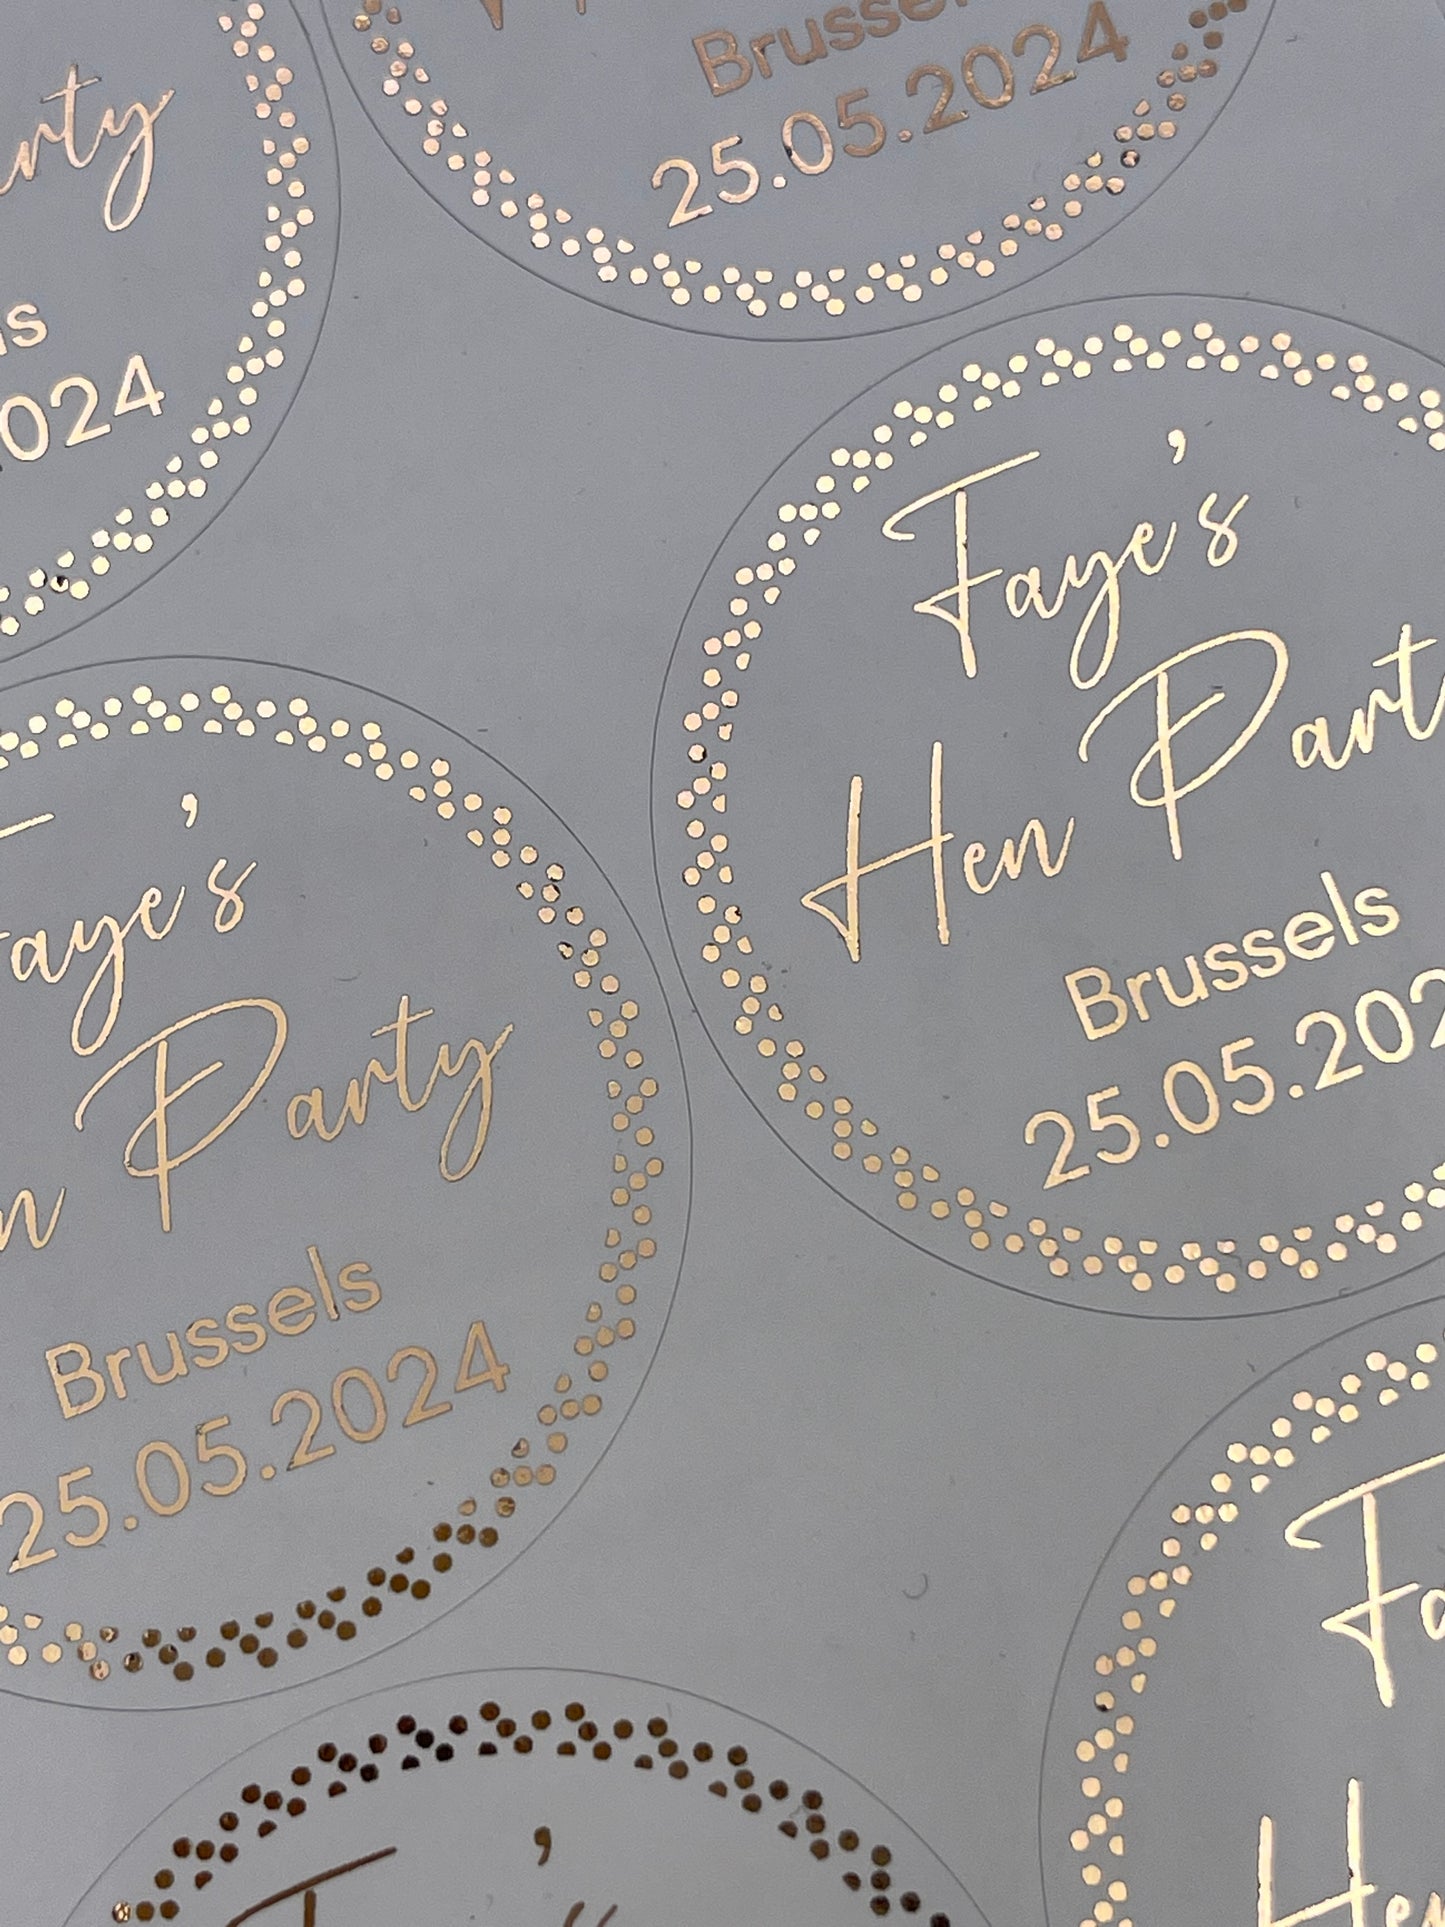 Brussels
25.05.2024
arty
2024
Faye's
Hen Party
Brussels
25.05.202
Faye's
Party
Brussels
25.05.2024
Fa
Hen